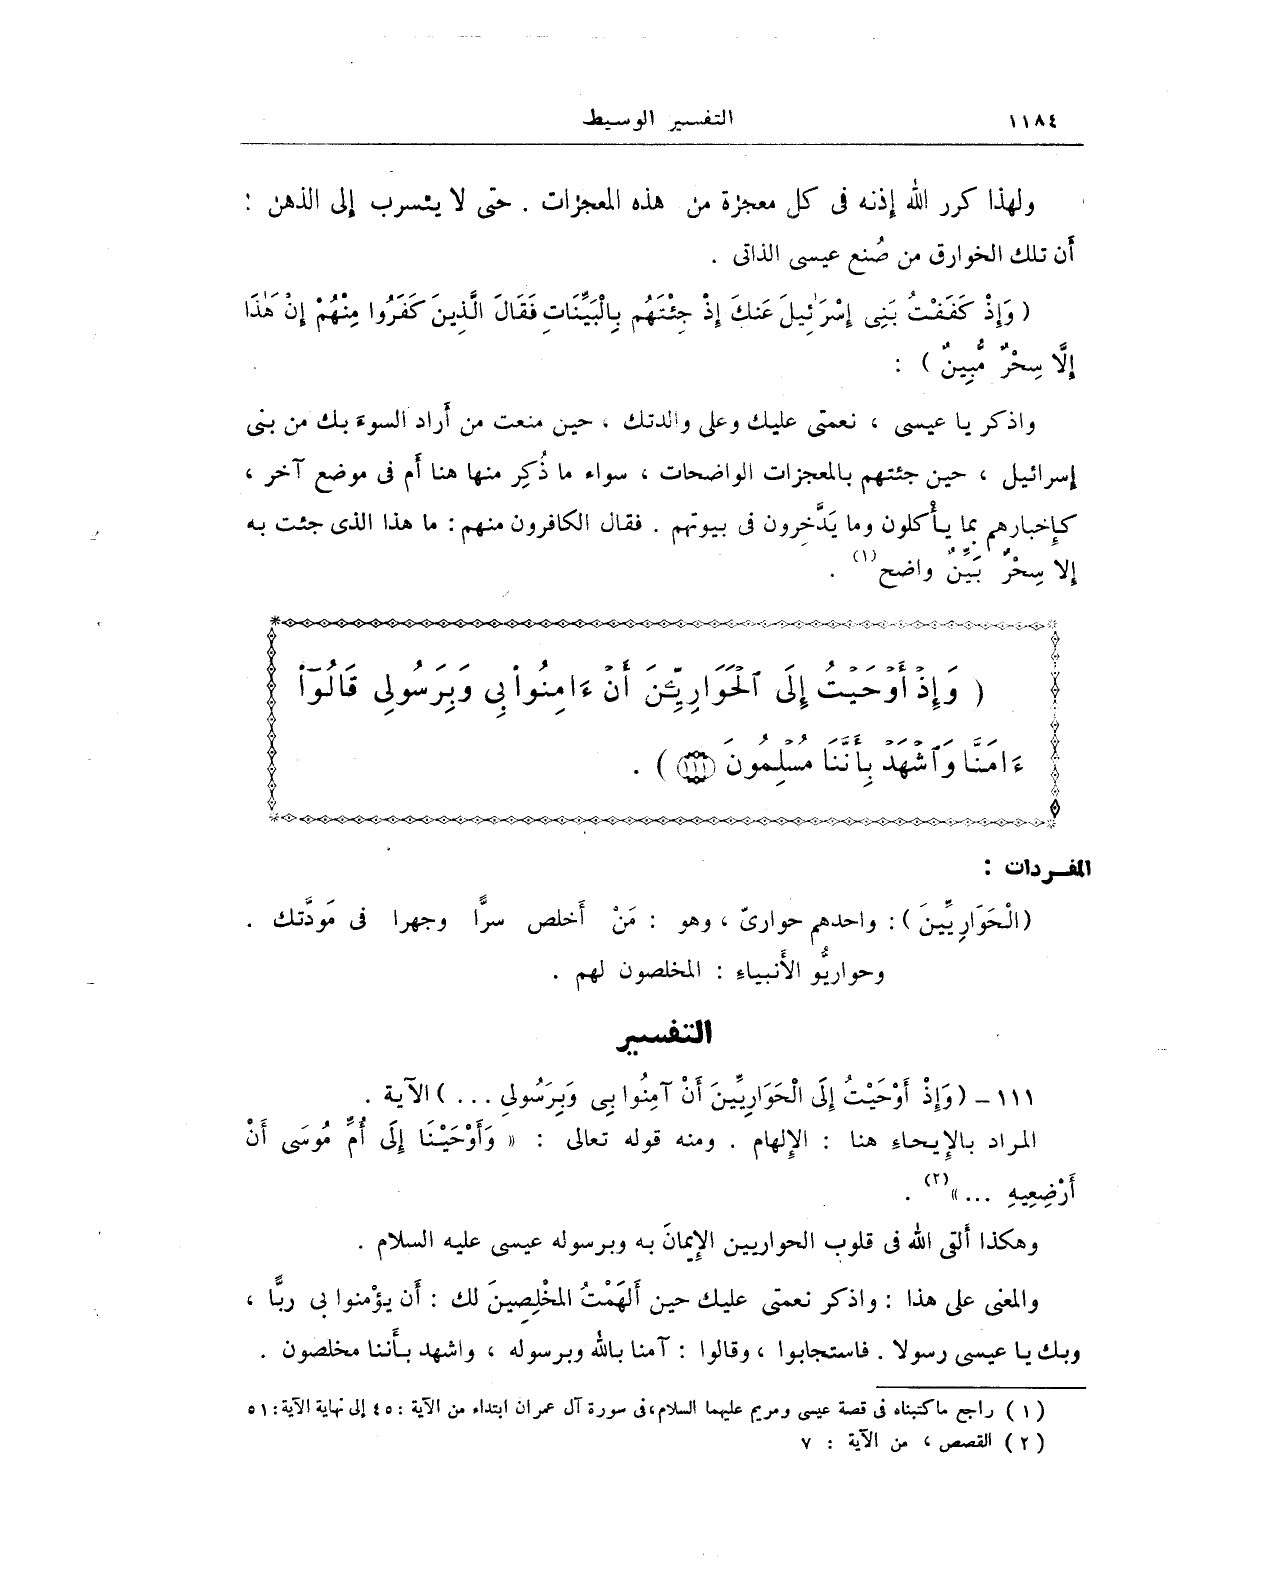 ١١٨٤ التفسير الوسيط
ولهذا كرر الله إذنه فى كل معجزة من هذه المعجزات . حتى لا يتسرب إلى الذهن :
أن تلك الخوارق من صُنع عيسى الذاتى .
( وَإِذْ كَفَفْتُ بَنِى إِسْرَٰئِيلَ عَنكَ إِذْ جِئْتَهُم بِالْبَيِّنَاتِ فَقَالَ الَّذِينَ كَفَرُوا مِنْهُمْ إِنْ هَٰذَا
إِلَّا سِحْرٌ مُّبِينٌ ) :
واذكر يا عيسى ، نعمتى عليك وعلى والدتك ، حين منعت من أراد السوءَ بك من بنى
إسرائيل ، حين جئتهم بالمعجزات الواضحات ، سواء ما ذُكِر منها هنا أم فى موضع آخر ،
كإخبارهم بما يأْكلون وما يَدَّخِرون فى بيوتهم . فقال الكافرون منهم : ما هذا الذى جئت به
إلا سِحْرٌ بَيِّنٌ واضح (١) .
( وَإِذْ أَوْحَيْتُ إِلَى ٱلْحَوَارِيِّـۧنَ أَنْ ءَامِنُوا۟ بِى وَبِرَسُولِى قَالُوٓا۟
ءَامَنَّا وَٱشْهَدْ بِأَنَّنَا مُسْلِمُونَ ١١١ ) .
المفردات :
(الْحَوَارِيِّينَ ) : واحدهم حوارىّ ، وهو : مَنْ أَخلص سرًّا وجهرا فى مَودَّتك .
وحواريُّو الأَنبياء : المخلصون لهم .
التفسير
١١١ - (وَإِذْ أَوْحَيْتُ إِلَى الْحَوَارِيِّينَ أَنْ آمِنُوا بِى وَبِرَسُولِى ... ) الآية .
المراد بالإِيحاء هنا : الإلهام . ومنه قوله تعالى : « وَأَوْحَيْنَا إِلَى أُمِّ مُوسَى أَنْ
أَرْضِعِيهِ ... » (٢) .
وهكذا أَلقى الله فى قلوب الحواريين الإيمَانَ به وبرسوله عيسى عليه السلام .
والمعنى على هذا : واذكر نعمتى عليك حين أَلهَمْتُ المخْلِصِينَ لك : أَن يؤْمنوا بى ربًّا ،
وبك يا عيسى رسولا . فاستجابوا ، وقالوا : آمنا بالله وبرسوله ، واشهد بأَننا مخلصون .
(١) راجع ما كتبناه فى قصة عيسى ومريم عليهما السلام، فى سورة آل عمران ابتداء من الآية : ٤٥ إلى نهاية الآية : ٥١
(٢) القصص ، من الآية : ٧